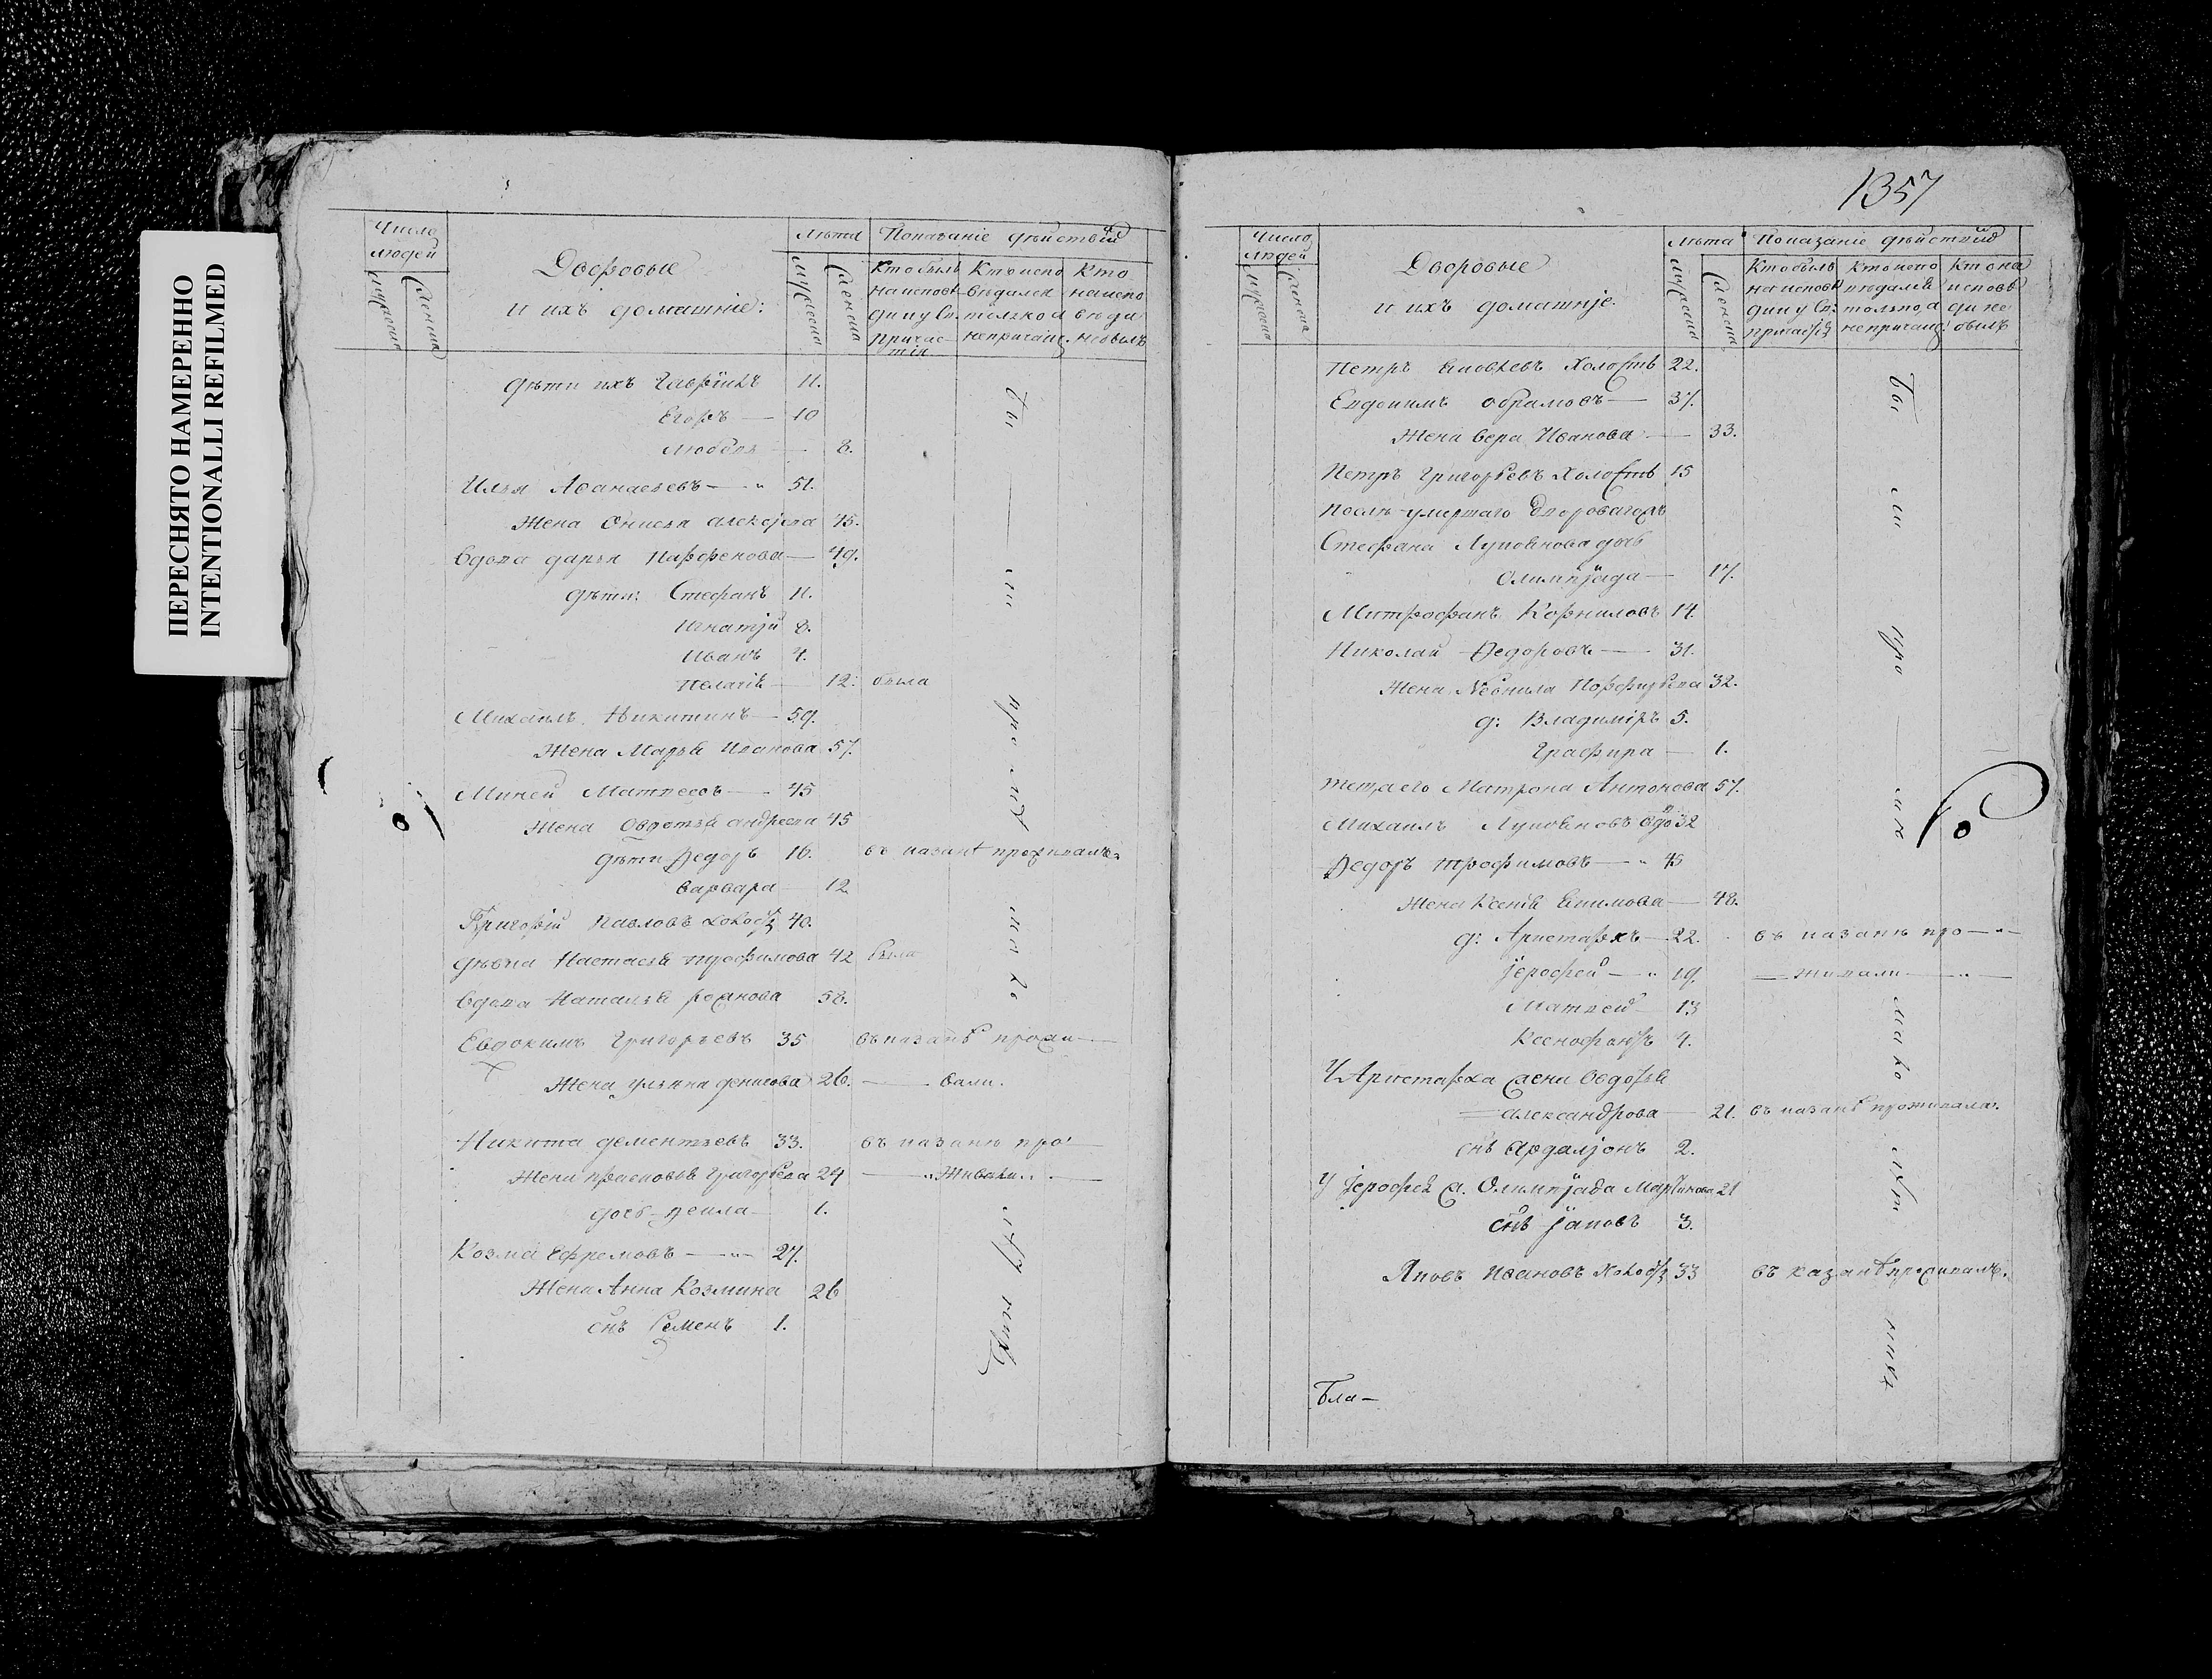 ПЕРЕСНЯТО НАМЕРЕННО
INTENTIONALLI REFILMED
Число людей
мужеска
женска
Дворовые
и ихъ домашніе:
лѣта
мужеска
женска
Показаніе дѣйствій
Кто былъ на исповѣди у Св. причастія
Кто исповѣдался только а непричащ.
Кто на исповѣди небылъ
дѣти ихъ Гавріилъ 11.
Егоръ — 10
Любовь — 8.
Илья Аѳанасьевъ — 51.
Жена Онисья алексѣева 45.
Вдова дарья Парфенова — 49.
дѣти: Стефанъ 11.
Игнатій 8.
Иванъ 4.
Пелагія — 12. была
Михаилъ Никитинъ — 59.
Жена Марья Иванова 57.
Миней Матвеевъ — 45
Жена Овдотья андреева 45
дѣти Ѳедоръ 16. въ казанѣ проживалъ
варвара — 12
Григорій Павловъ холостъ 40.
дѣвка Настасья трофимова 42 была
Вдова Наталья романова 58.
Евдокимъ Григорьевъ 35 въ казанѣ прожи—
Жена ульяна денисова 26. — вали.
Никита дементьевъ 33. въ казанѣ про—
Жена прасковья Григорьева 24 — живали. —
дочь Ѳекла — 1.
Козма Ефремовъ — 27.
Жена Анна Козмина 26
снъ Семенъ 1.
1357
Число людей
мужеска
женска
Дворовые
и ихъ домашніе.
лѣта
мужеска
женска
Показаніе дѣйствій
Кто былъ на исповѣди у Св. причастія
Кто исповѣдался только а непричащ.
Кто на исповѣди не былъ
Петръ Яковлевъ Холостъ 22.
Евдокимъ абрамовъ — 37.
Жена вера Иванова — 33.
Петръ Григорьевъ Холостъ 15
После умершаго Дворовагожъ
Стефана Луковнова дочь
Олимпіада — 17.
Митрофанъ Корниловъ 14.
Николай Ѳедоровъ — 31.
Жена Неонила Порфирьева 32.
д: Владиміръ 5.
Глафира — 1.
теща его Матрона Антонова 57.
Михаилъ Луковновъ вдо 32
Ѳедоръ трофимовъ — 45
Жена Ксенія Екимова — 48.
д: Аристархъ — 22. въ казанѣ про —
Іерофей — 19. — живали —
Матвей — 13
Ксенофонтъ 4.
У Аристарха жена Овдотья
александрова — 21. въ казанѣ проживала.
снъ Ардаліонъ 2.
У Іерофея ж. Олимпіада Мартинова 21
снъ Іаковъ 3.
Яковъ Ивановъ Холостъ 33 въ казанѣ проживалъ.
Бла—